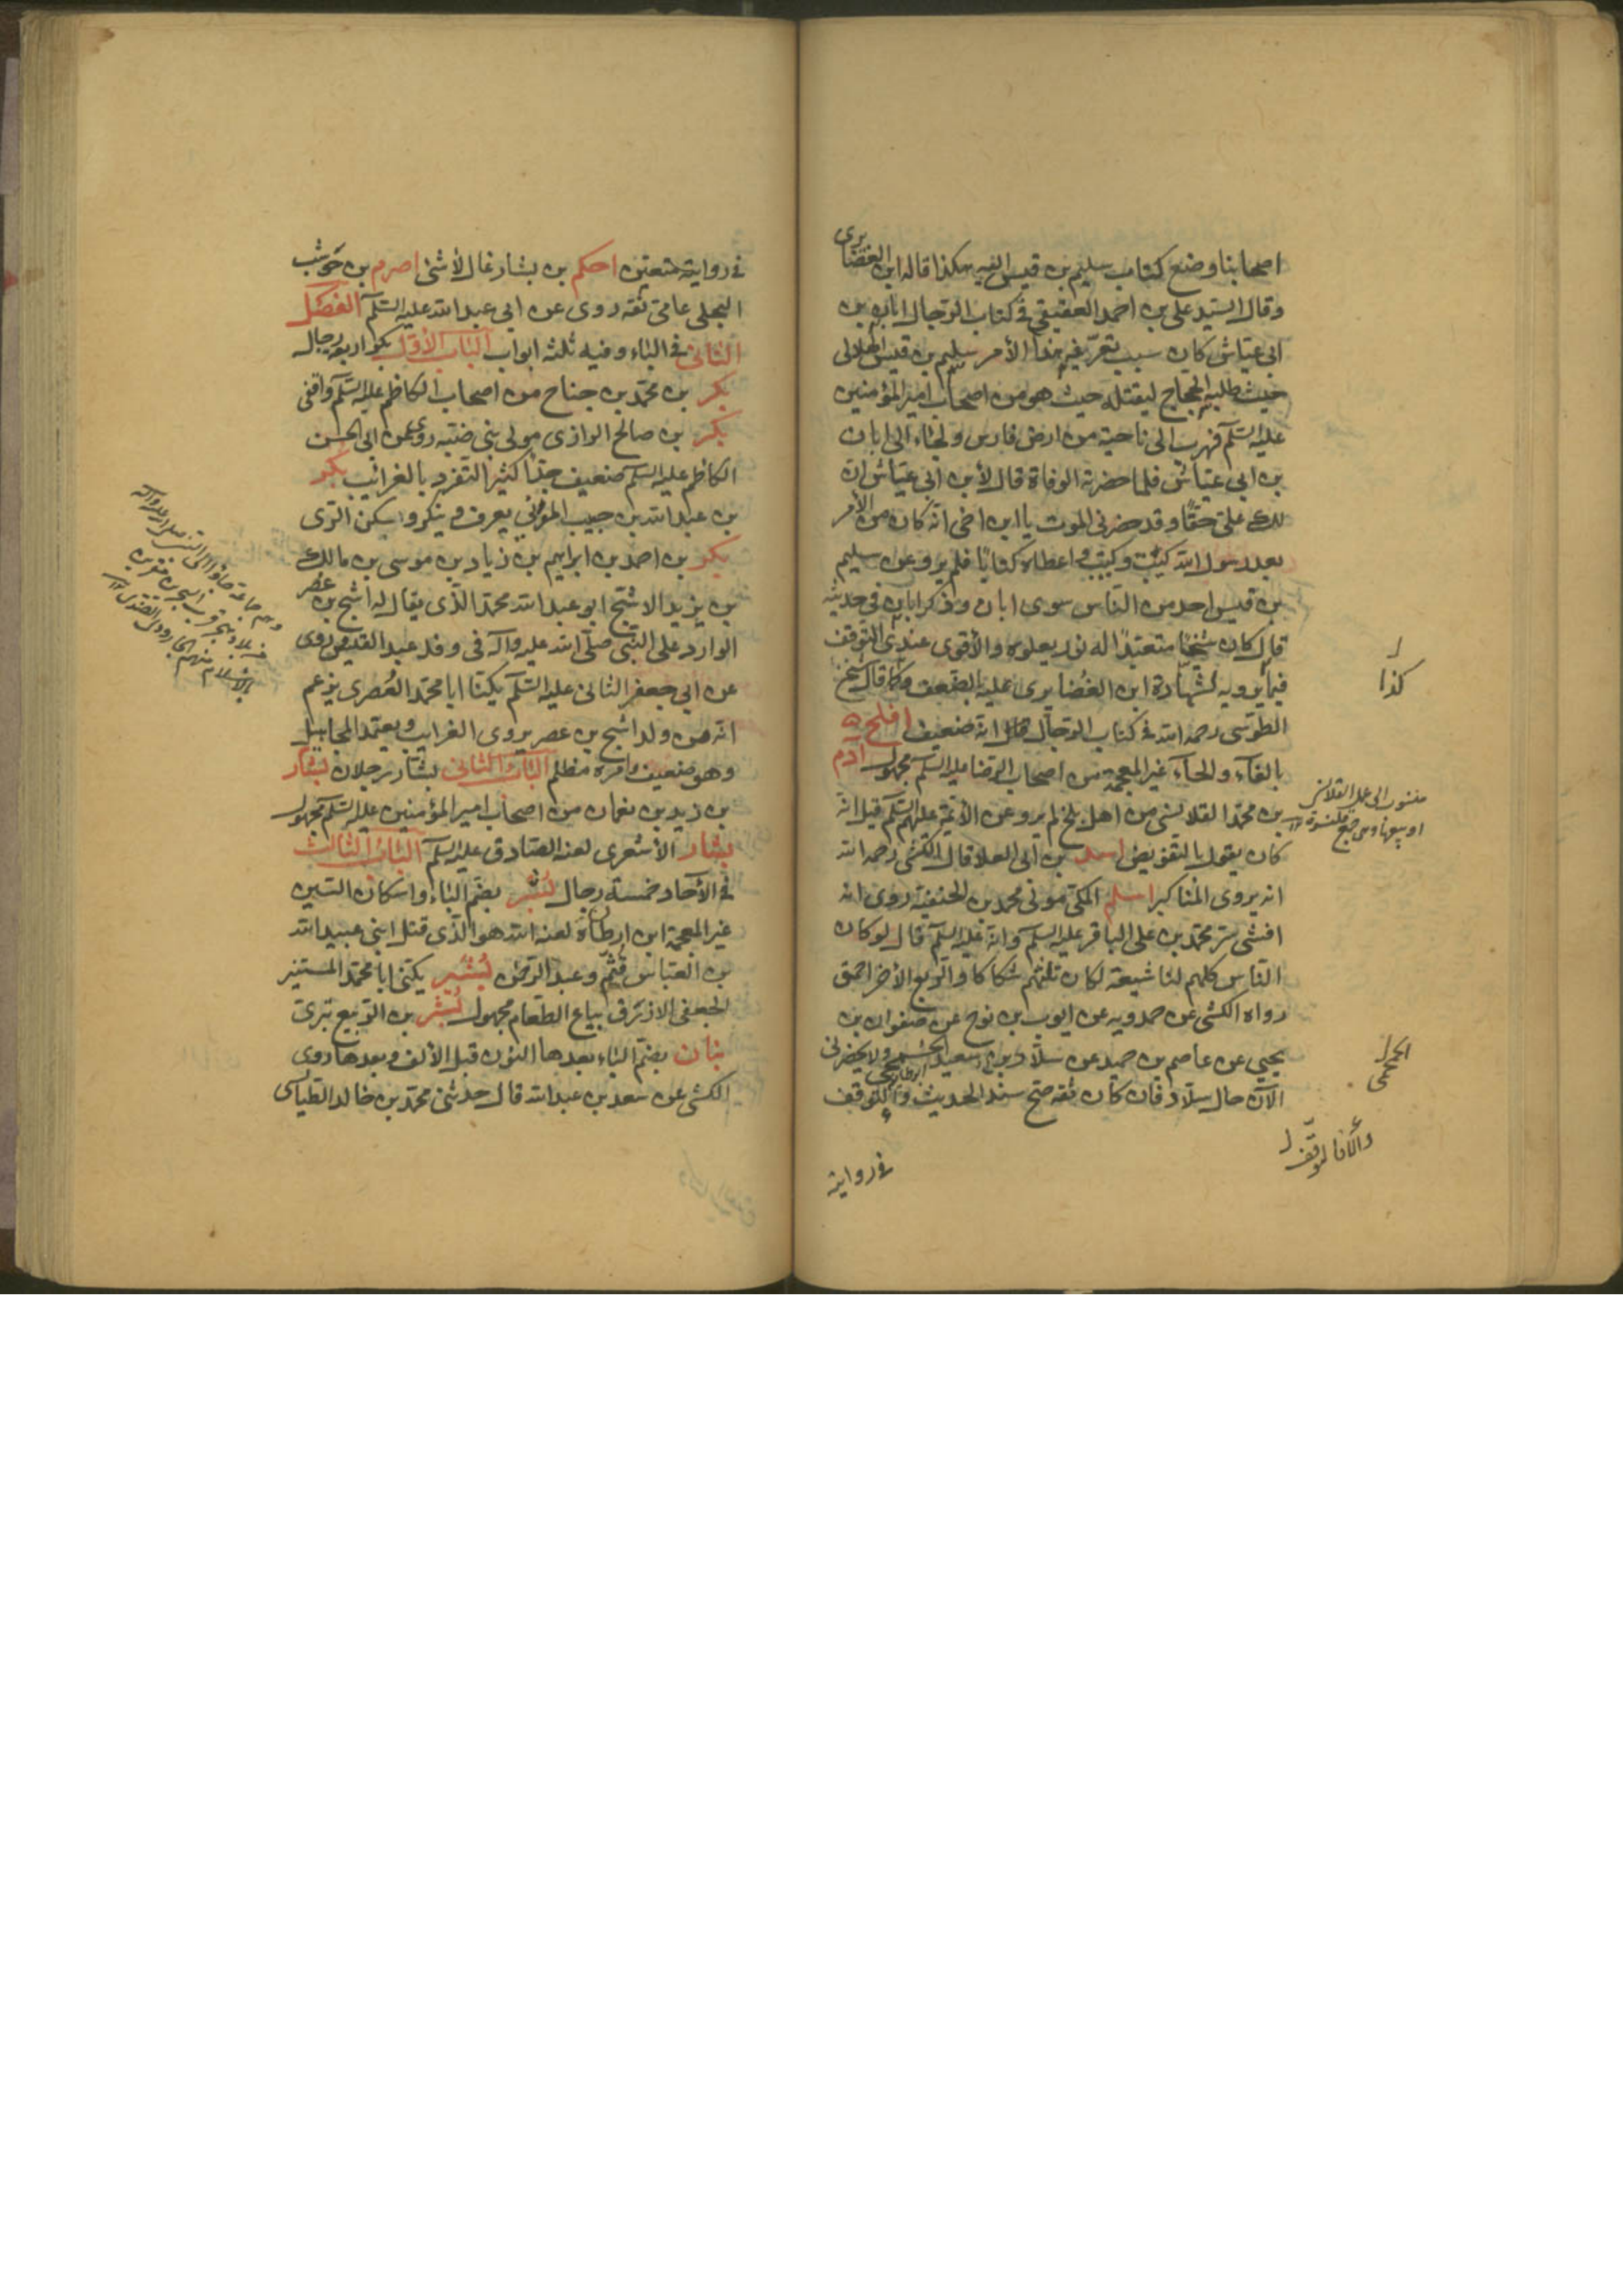 اصحابنا وضع كتاب سليم بن قيس اليه هكذا قاله ابن الغضايرى
وقال السيد على بن احمد العقيقى فى كتاب الرجال ابان بن
ابى عياش كان سبب تعرّفه هذا الأمر سليم بن قيس الهلالى
حيث طلبه الحجاج ليقتله حيث هو من اصحاب امير المؤمنين
عليه السّلم فهرب الى ناحية من ارض فارس ولجأ الى ابان
بن ابى عياش فلما حضرته الوفاة قال لأبن ابى عياش ان
لك علىّ حقًا وقد حضرنى الموت يا ابن اخى انه كان من الأمر
بعد رسول الله كيت وكيت واعطاه كتابًا فلم يرو عن سليم
بن قيس احد من الناس سوى ابان وذكر ابان فى حديثه
قال كان شيخًا متعبّدًا له نور يعلوه والأقوى عندى التوقف
فيما يرويه لشهادة ابن الغضايرى عليه بالضعف وكما قال شيخ
الطوسى رحمه الله فى كتاب الرجال قال انه ضعيف افلح
بالفاء والحاء غير المعجمة من اصحاب الرضا عليه السلم مجهول آدم
بن محمد القلانسى من اهل بلخ لم يرو عن الأئمة عليهم السّلم قيل انه
كان يقول بالتفويض اسد بن ابى العلا قال الكشى رحمه الله
انه يروى المناكير اسلم المكى مولى محمد بن الحنفية روى انه
افشى سرّ محمد بن على الباقر عليه السلم وانه عليه السلم قال لو كان
الناس كلهم لنا شيعة لكان ثلثهم شكاكا والربع الأخر احمق
رواه الكشى عن حمدويه عن ايوب بن نوح عن صفوان بن
يحيى عن عاصم بن حميد عن سلّار بن سعيد الجمحى ولا يحضرنى
الآن حال سلّار فان كان ثقة صح سند الحديث والّا للتوقف
كذا
منسوب الى عمل القلانس
او بيعها وهى جمع قلنسوة
الجمحى
فى رواية
فى روايته متعين احكم بن بشار غال لأشئ اصرم بن حوشب
البجلى عامى ثقة روى عن ابى عبد الله عليه السّلم الفصل
الثانى فى الباء وفيه ثلثة ابواب الباب الأول بكر اربعة رجال
بكر بن محمد بن جناح من اصحاب الكاظم عليه السّلم واقفى
بكر بن صالح الرازى مولى بنى ضبّه روى عن ابى الحسن
الكاظم عليه السلم ضعيف جدًا كثير التفرد بالغرائب بكر
بن عبد الله بن حبيب المزنى يعرف وينكر واسكن الرى
بكر بن احمد بن ابراهيم بن زياد بن موسى بن مالك
بن يزيد الاشج ابو عبد الله محمد الذّى يقال له اشج بن عصر
الوارد على النبى صلّى الله عليه وآله فى وفد عبد القيس روى
عن ابى جعفر الثانى عليه السّلم يكنّا ابا محمد العُصرى يزعم
انه من ولد اشج بن عصر يروى الغرايب ويعتمد المجاهيل
وهو ضعيف وامره مظلم الباب الثانى بشّار رجلان بشار
بن زيد بن نعمان من اصحاب امير المؤمنين عليه السّلم مجهول
بشار الأشعرى لعنه الصادق عليه السلم الباب الثالث
فى الآحاد خمسة رجال بُسْر بضم الباء واسكان السين
غير المعجمة ابن ارطاة لعنه الله هو الذّى قتل ابنى عبيد الله
بن العباس قثم وعبد الرحمن بُشير يكنى ابا محمد المستنير
الجعفى الازرق بياع الطعام مجهول بُشر بن الربيع بترى
بنان بضم الباء بعدها النون قبل الألف وبعدها روى
الكشى عن سعد بن عبد الله قال حدثنى محمد بن خالد الطيالسى